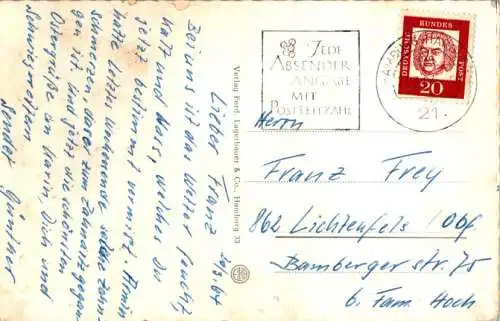 20.3.64
Lieber Franz
Bei uns ist das Wetter feucht,
kalt und Nass, welches Du
jetzt bestimmt vermißt. Armin
hatte letztes Wochenende solche Zahn-
schmerzen, daß er zum Zahnarzt gegan-
gen ist. Und jetzt die schönsten
Ostergrüße an Karin, Dich und
Schwiegereltern
sendet Günther
Verlag Ferd. Lagerbauer & Co., Hamburg 33
JEDE
ABSENDER
ANGABE
MIT
POSTLEITZAHL
21
DEUTSCHE
BUNDES
POST
20
Herrn
Franz Frey
862 Lichtenfels/Obf
Bamberger str. 75
b. Fam. Hoch